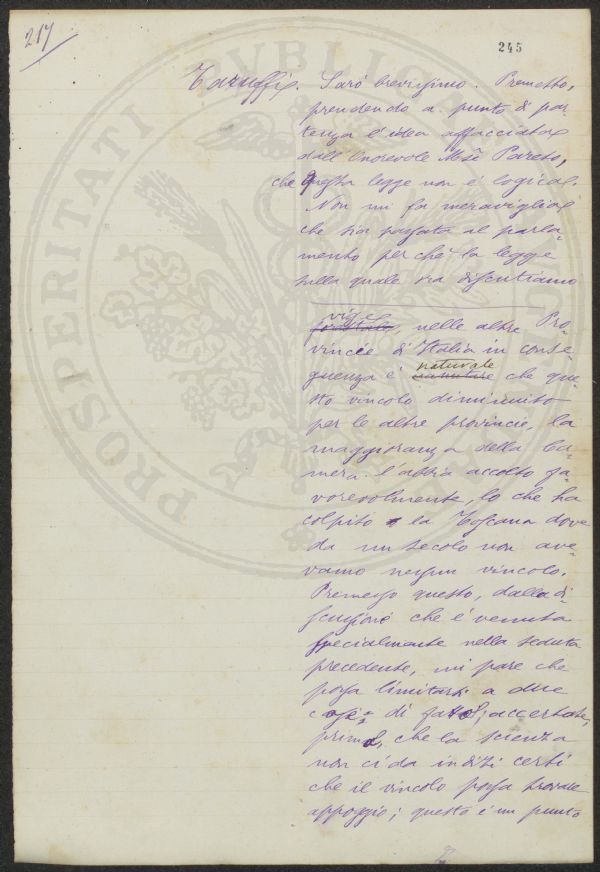 217
245
Taruffi. Sarò brevissimo. Premetto,
prendendo a punto di par-
tenza l'idea affacciata
dall'Onorevole Mse Pareto,
che questa legge non è logica.
Non mi fa meraviglia
che sia passata al parla-
mento per chè la legge
sulla quale ora discutiamo
vige
forestale, nelle altre Pro-
vincie d'Italia in conse-
guenza è naturale che que-
sto vincolo diminuito
per le altre provincie, la
maggioranza della Ca-
mera l'abbia accolto fa-
vorevolmente, lo che ha
colpito la Toscana dove
da un secolo non ave-
vamo nessun vincolo.
Premesso questo, dalla di-
scussione che è venuta
specialmente nella seduta
precedente, mi pare che
possa limitarsi a due
cose di fatto; accertate,
prima, che la scienza
non ci da indizi certi
che il vincolo possa trovare
appoggio; questo è un punto
PROSPERITATI PVBLICAE